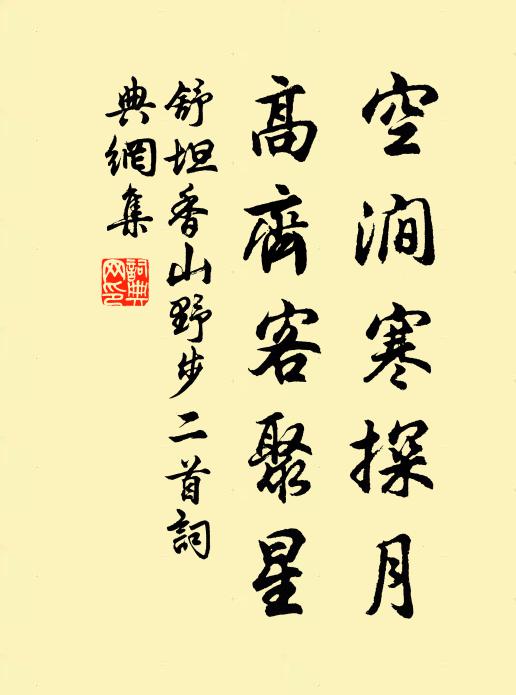 空澗寒探月
高齊客聚星
舒坦香山野步二首詞
典網集
詞典
网印